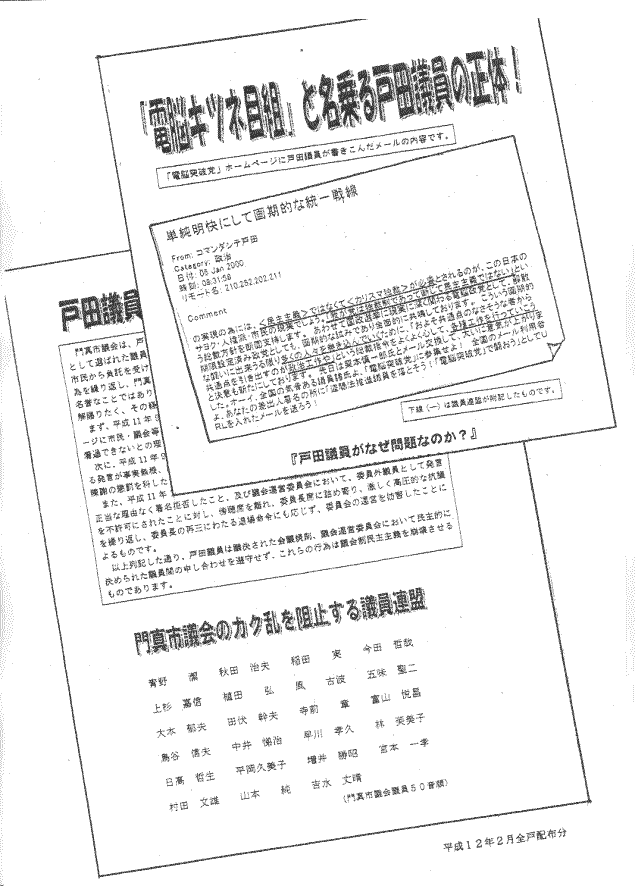 「電脳キツネ目組」と名乗る戸田議員の正体！
「電脳突破党」ホームページに戸田議員が書きこんだメールの内容です。
単純明快にして画期的な統一戦線
From: コマンダンテ戸田
Category: 政治
日付: 05 Jan 2000
時刻: 09:31:56
リモート名: 210.252.202.211
Comment
の実現の為には、＜民主主義＞ではなくて＜カリスマ独裁＞が必要とされるのが、この日本の
う総裁方針を断固支持します。
共通点を引き出すのが政治工作や」という総裁指令をよくよく心して、多種工作を行っていこう
と決意も新たにしております。
RLを入れたメールを送ろう！
下線（―）は議員連盟が附記したものです。
『戸田議員がなぜ問題なのか？』
戸田議員
門真市議会は、戸
として選ばれた議員
市民から負託を受け
為を繰り返し、門真
名誉なことであり
解賜りたく、その経
まず、平成11年
ージに市民・議会等
看過できないとの理
次に、平成11年9
る発言が事実無根、
陳謝の懲罰を科した
また、平成11年
正当な理由なく署名拒否したこと、及び議会運営委員会において、委員外議員として発言
を不許可にされたことに対し、傍聴席を離れ、委員長席に詰め寄り、激しく高圧的な抗議
を繰り返し、委員長の再三にわたる退場命令にも応じず、委員会の運営を妨害したことに
よるものです。
以上列記した通り、戸田議員は議決された会議規則、議会運営委員会において民主的に
決められた議員間の申し合わせを遵守せず、これらの行為は議会制民主主義を崩壊させる
ものであります。
門真市議会のカク乱を阻止する議員連盟
青野　潔　秋田　治夫　稲田　実　今田　哲哉
上杉　嘉信　植田　弘　風　古波　五味　聖二
大本　郁夫　田伏　幹夫　寺前　章　富山　悦昌
鳥谷　信夫　中井　悌治　早川　孝久　林　芙美子
日高　哲生　平岡久美子　増井　勝昭　宮本　一孝
村田　文雄　山本　純　吉水　丈晴
（門真市議会議員５０音順）
平成１２年２月全戸配布分